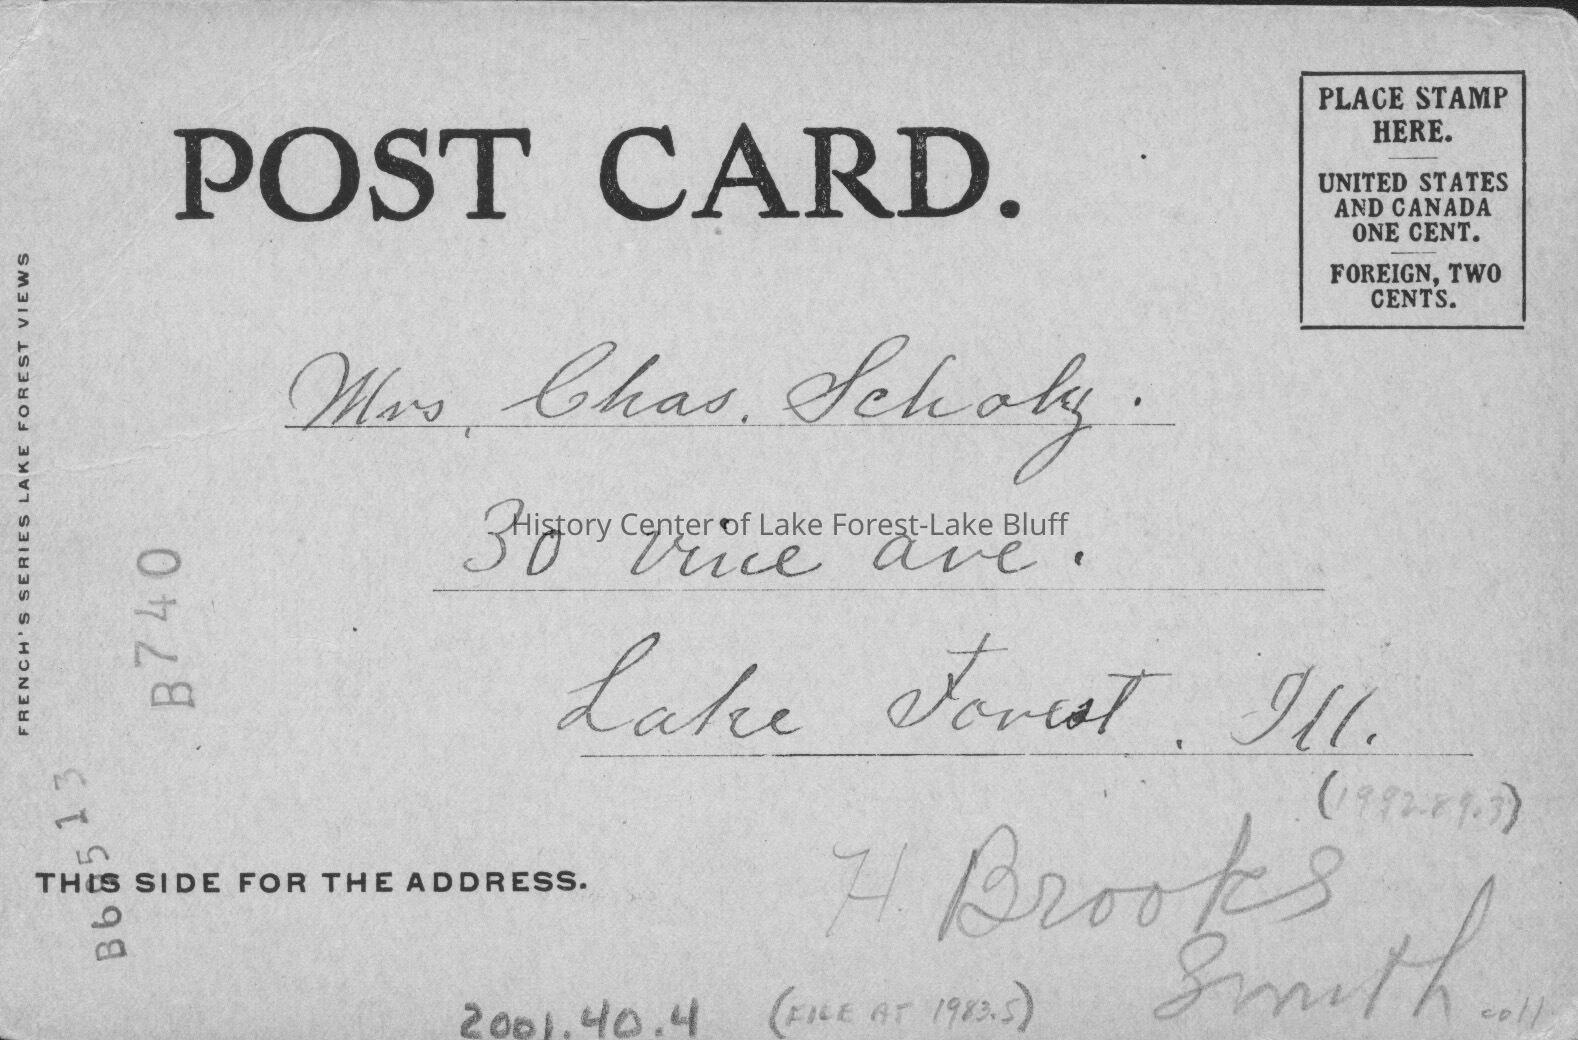 POST CARD.
PLACE STAMP
HERE.
UNITED STATES
AND CANADA
ONE CENT.
FOREIGN, TWO
CENTS.
FRENCH'S SERIES LAKE FOREST VIEWS
Mrs, Chas. Scholz.
History Center of Lake Forest-Lake Bluff
30 Vine ave.
Lake Forest. Ill.
B740
(1992.89.3)
THIS SIDE FOR THE ADDRESS.
H. Brooks
Smith coll
2001.40.4 (FILE AT 1983.5)